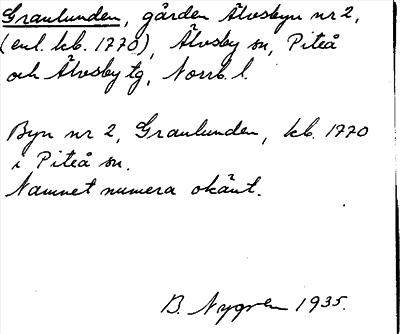 Granlunden, gården Älvsbyn nr 2,
(enl. kb. 1770), Älvsby sn, Piteå
och Älvsby tg, Norrb. l.
Byn nr 2, Granlunden, kb. 1770
i Piteå sn.
Namnet numera okänt.
B. Nygren 1935.